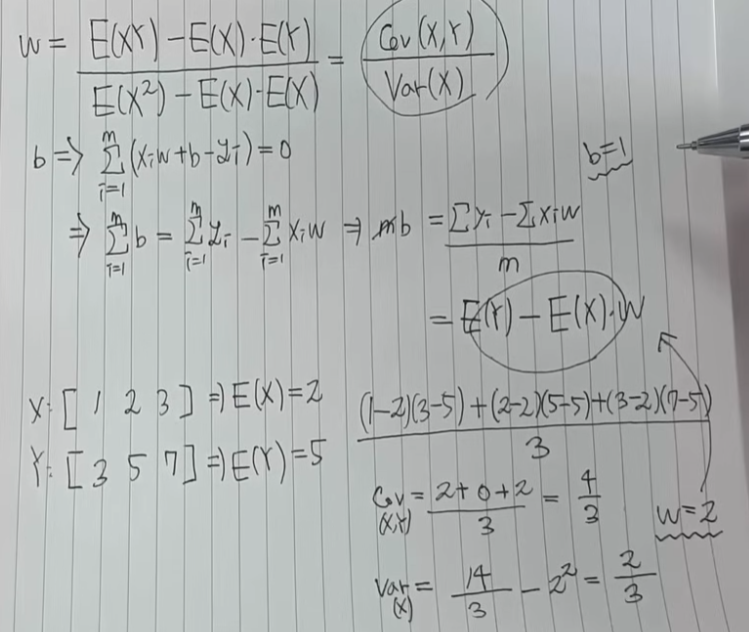 w = (E(XY) - E(X)·E(Y)) / (E(X²) - E(X)·E(X)) = Cov(X,Y) / Var(X)
b ⇒ Σ_{i=1}^{m} (x_i w + b - y_i) = 0
b = 1
⇒ Σ_{i=1}^{m} b = Σ_{i=1}^{m} y_i - Σ_{i=1}^{m} x_i w ⇒ mb = (Σy_i - Σx_i w) / m
= E(Y) - E(X)·W
X: [ 1 2 3 ] ⇒ E(X) = 2
Y: [ 3 5 7 ] ⇒ E(Y) = 5
((1-2)(3-5) + (2-2)(5-5) + (3-2)(7-5)) / 3
Cov(X,Y) = (2+0+2) / 3 = 4/3
w = 2
Var(X) = 14/3 - 2² = 2/3